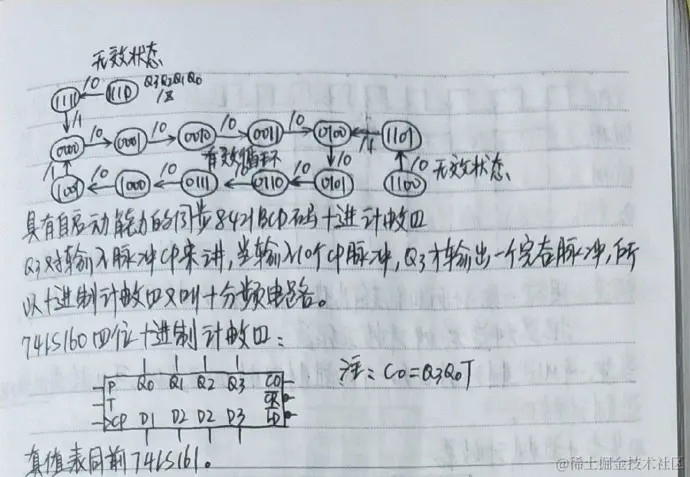 无效状态
1111 /0 1110 Q3Q2Q1Q0
/1 /Z
0000 /0 0001 /0 0010 /0 0011 /0 0100 /1 1101
/1 有效循环 /0 /0
1001 /0 1000 /0 0111 /0 0110 /0 0101 1100 无效状态
具有自启动能力的同步8421BCD码十进计数四
Q3对输入脉冲CP来讲,当输入10个CP脉冲,Q3才输出一个完态脉冲,所
以十进制计数四又叫十分频电路。
74LS160四位十进制计数四:
P Q0 Q1 Q2 Q3 CO 注:CO=Q3Q0T
T CR
CP D1 D2 D2 D3 LD
真值表同前74LS161。
@稀土掘金技术社区